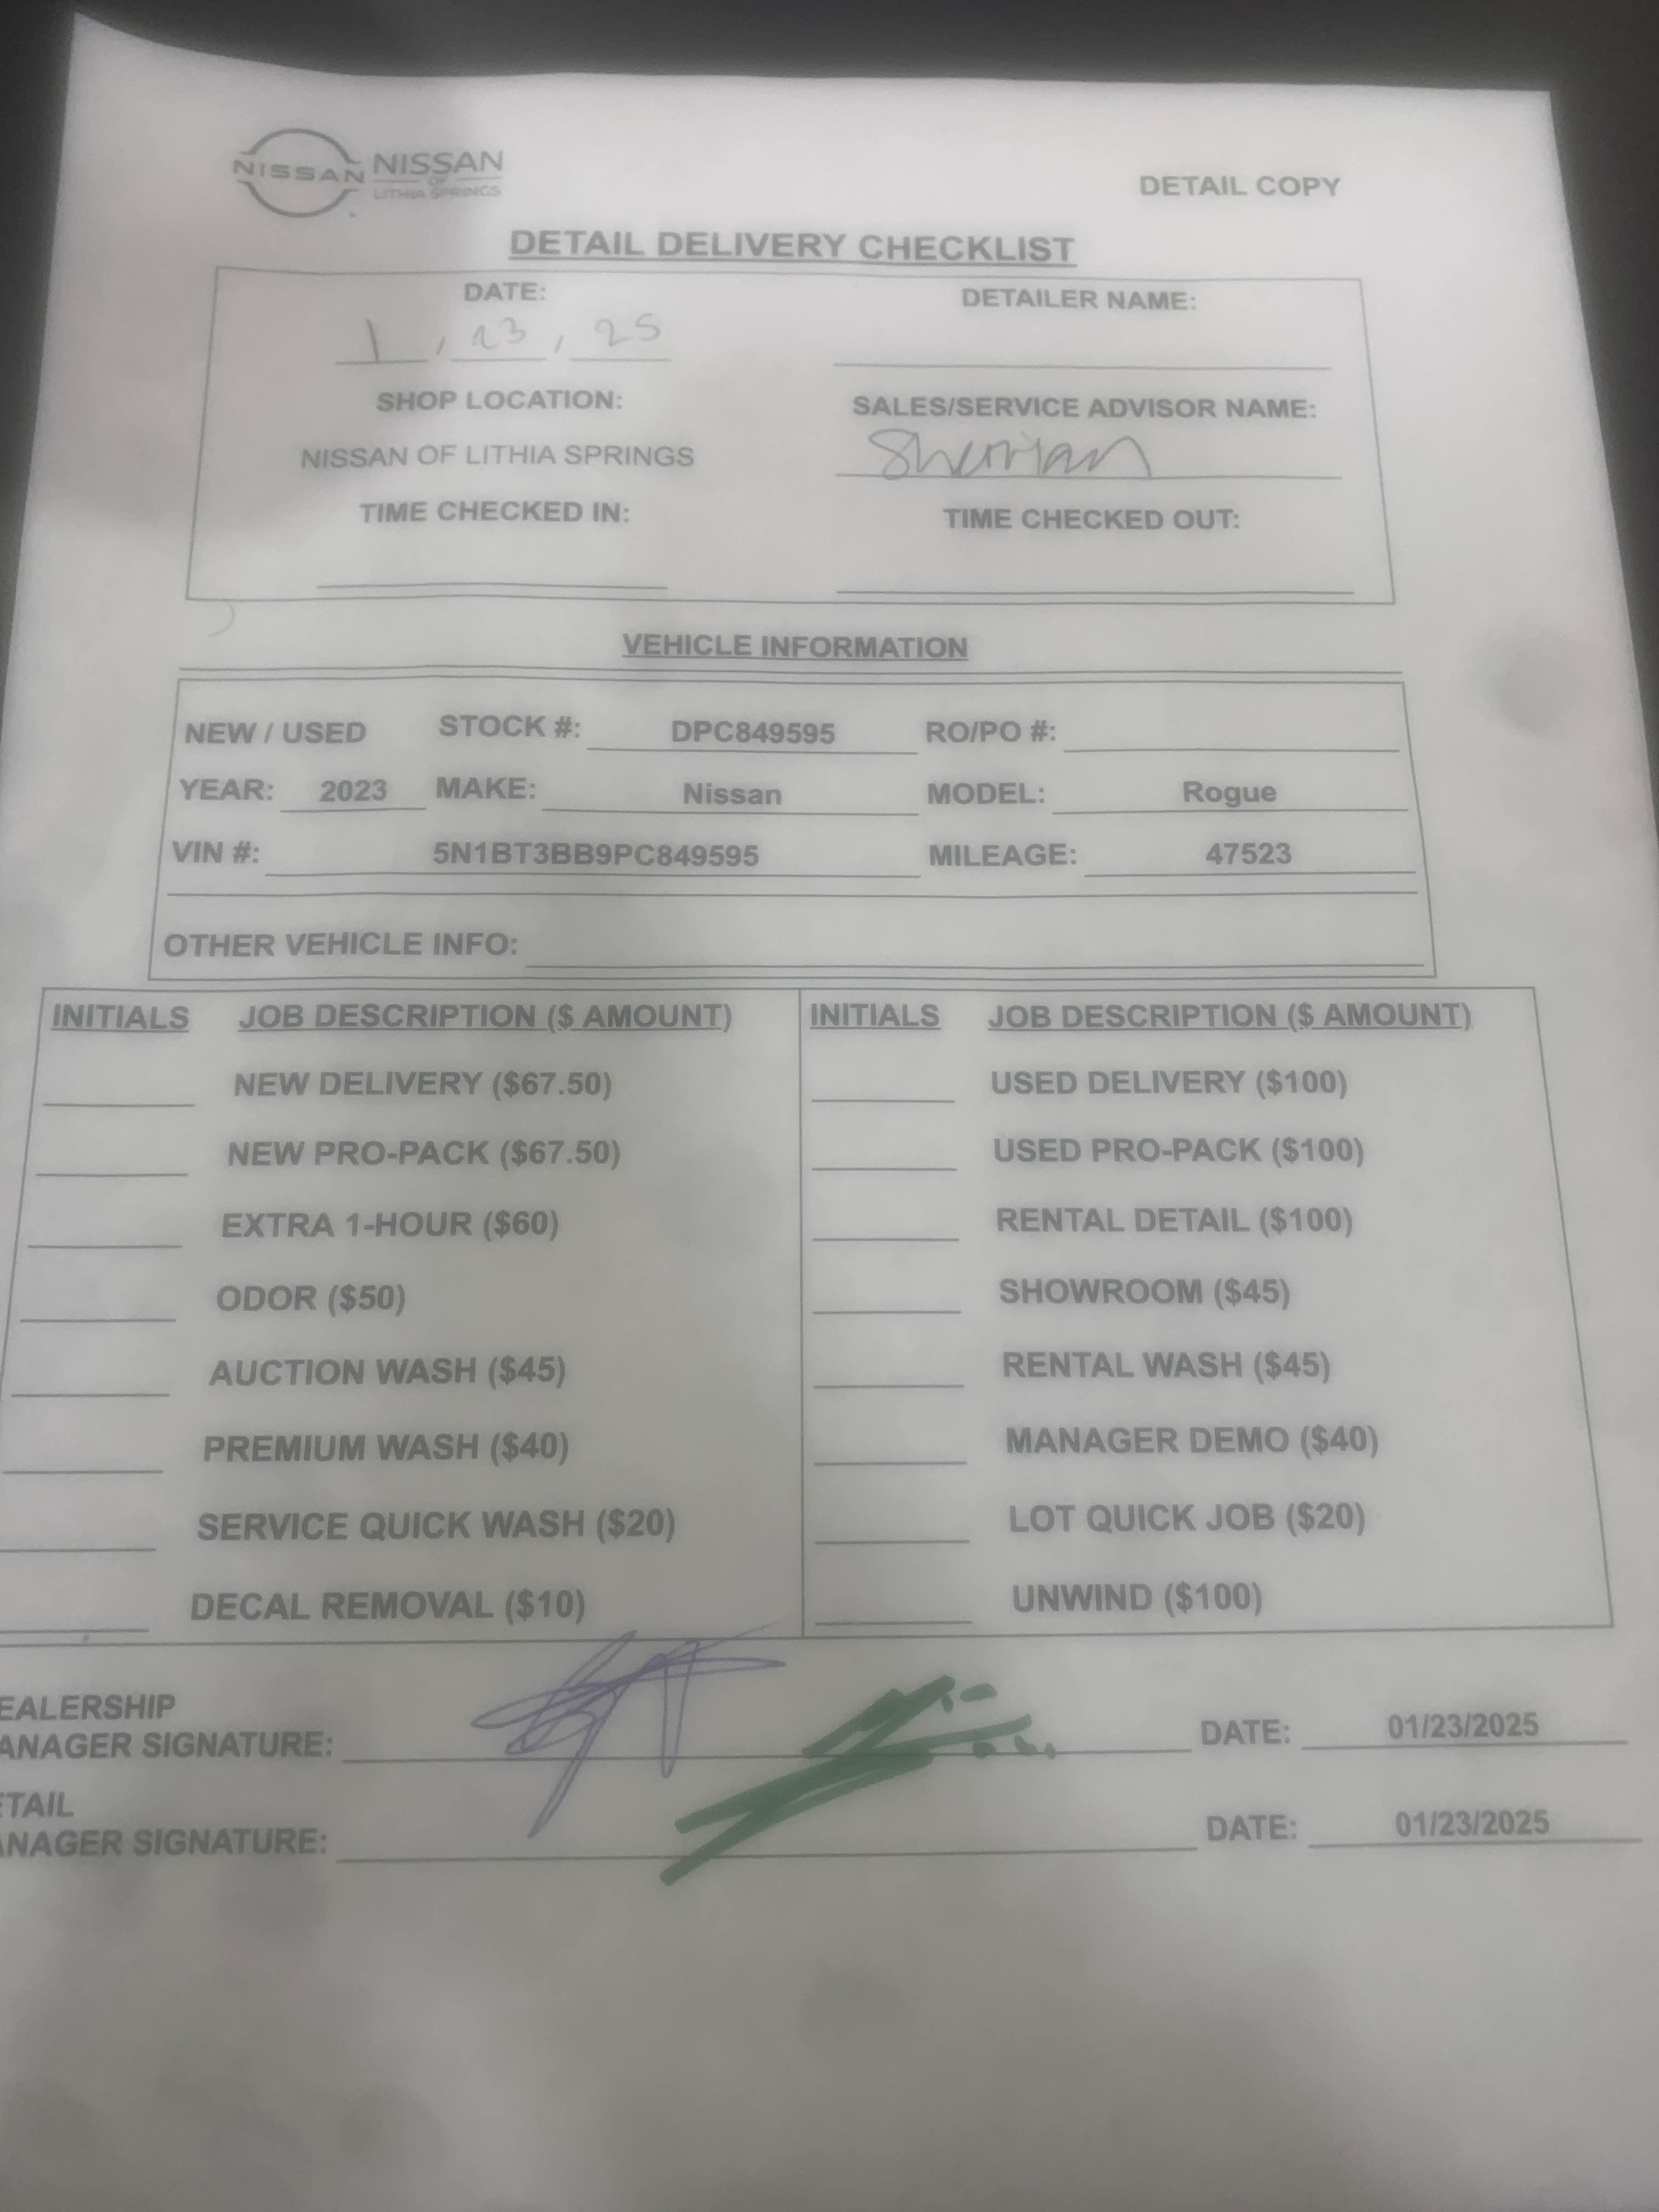 NISSAN NISSAN
OF
LITHIA SPRINGS
DETAIL COPY
DETAIL DELIVERY CHECKLIST
DATE: DETAILER NAME:
1 , 23 , 25
SHOP LOCATION: SALES/SERVICE ADVISOR NAME:
NISSAN OF LITHIA SPRINGS
TIME CHECKED IN: TIME CHECKED OUT:
VEHICLE INFORMATION
NEW / USED STOCK #: DPC849595 RO/PO #:
YEAR: 2023 MAKE: Nissan MODEL: Rogue
VIN #: 5N1BT3BB9PC849595 MILEAGE: 47523
OTHER VEHICLE INFO:
INITIALS JOB DESCRIPTION ($ AMOUNT) INITIALS JOB DESCRIPTION ($ AMOUNT)
NEW DELIVERY ($67.50) USED DELIVERY ($100)
NEW PRO-PACK ($67.50) USED PRO-PACK ($100)
EXTRA 1-HOUR ($60) RENTAL DETAIL ($100)
ODOR ($50) SHOWROOM ($45)
AUCTION WASH ($45) RENTAL WASH ($45)
PREMIUM WASH ($40) MANAGER DEMO ($40)
SERVICE QUICK WASH ($20) LOT QUICK JOB ($20)
DECAL REMOVAL ($10) UNWIND ($100)
EALERSHIP
ANAGER SIGNATURE: DATE: 01/23/2025
ETAIL
ANAGER SIGNATURE: DATE: 01/23/2025